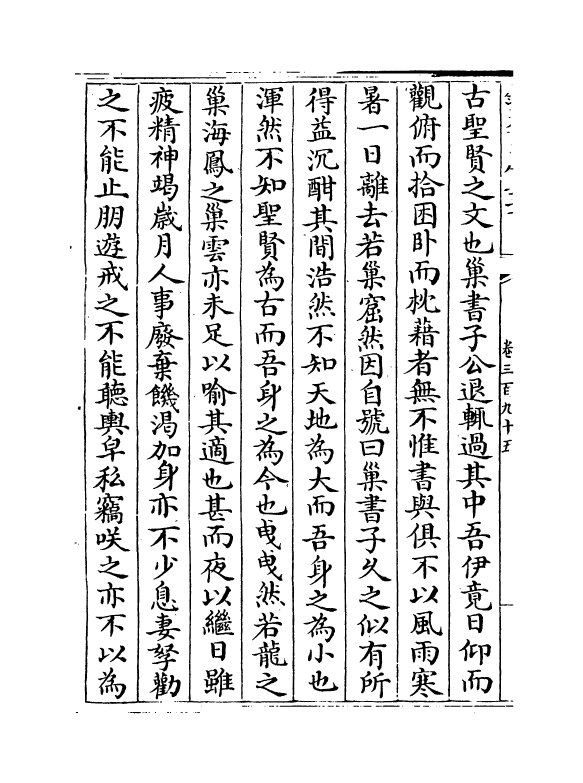 古聖賢之文也巢書子公退輒過其中吾伊竟日仰而
觀俯而拾困卧而枕藉者無不惟書與俱不以風雨寒
暑一日離去若巢窟然因自號曰巢書子久之似有所
得益沉酣其間浩然不知天地為大而吾身之為小也
渾然不知聖賢為古而吾身之為今也曵曵然若龍之
巢海鳳之巢雲亦未足以喻其適也甚而夜以繼日雖
疲精神竭歳月人事廢棄饑渴加身亦不少息妻孥勸
之不能止朋遊戒之不能聽輿皁私竊咲之亦不以為
卷三百九十五